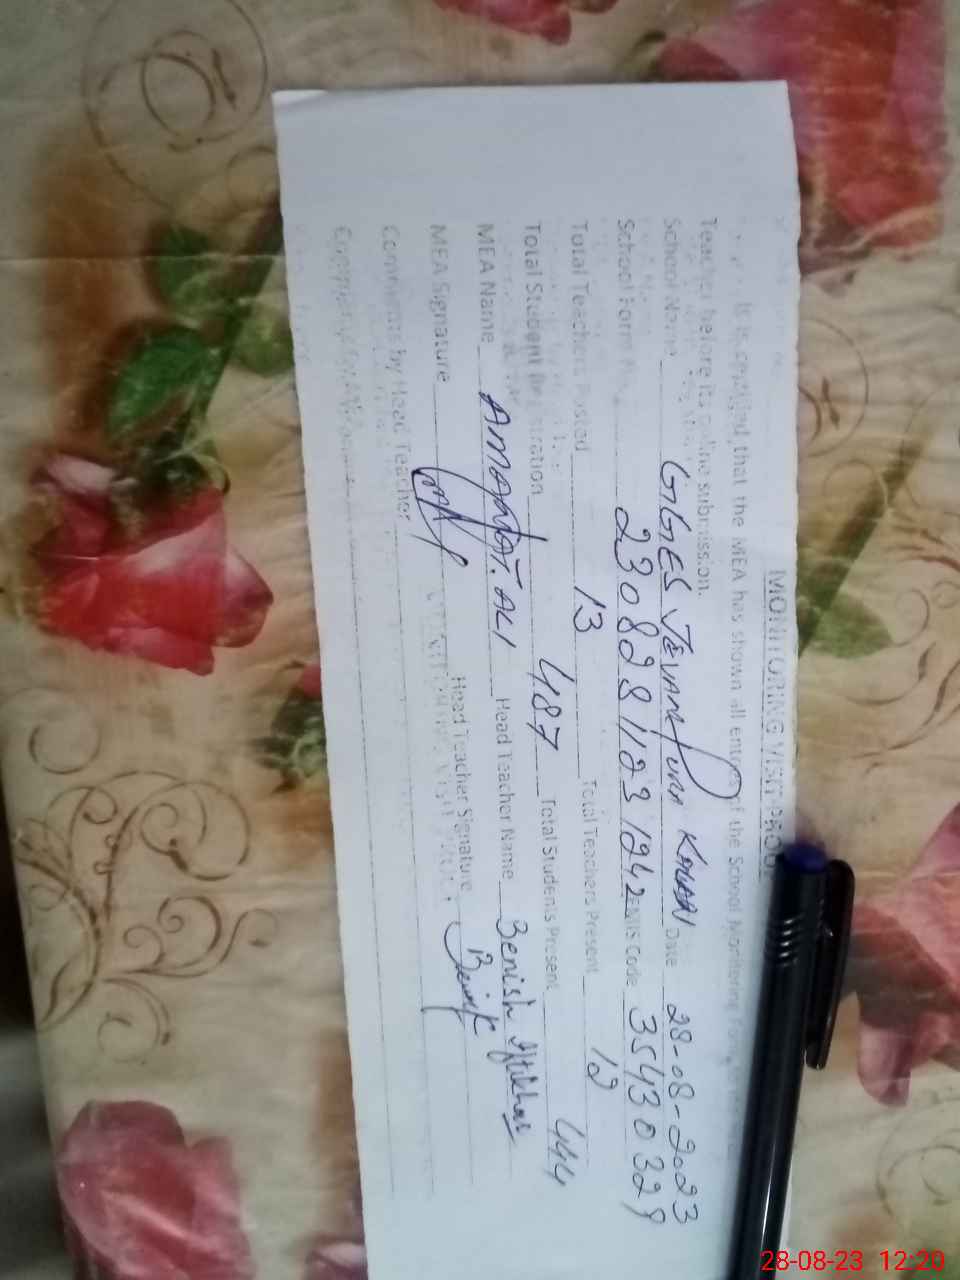 MONITORING VISIT PROOF
It is certified that the MEA has shown all entries of the School Monitoring Form
Teacher before its online submission.
School Name GGES JEVAN PURA KALAN Date 28-08-2023
School Form No. 23082811231242 EMIS Code 35430328
Total Teachers Posted 13 Total Teachers Present 12
Total Student Registration 487 Total Students Present 444
MEA Name AMANAT ALI Head Teacher Name Benish Iftikhar
MEA Signature Head Teacher Signature Benish
Comments by Head Teacher
28-08-23 12:20